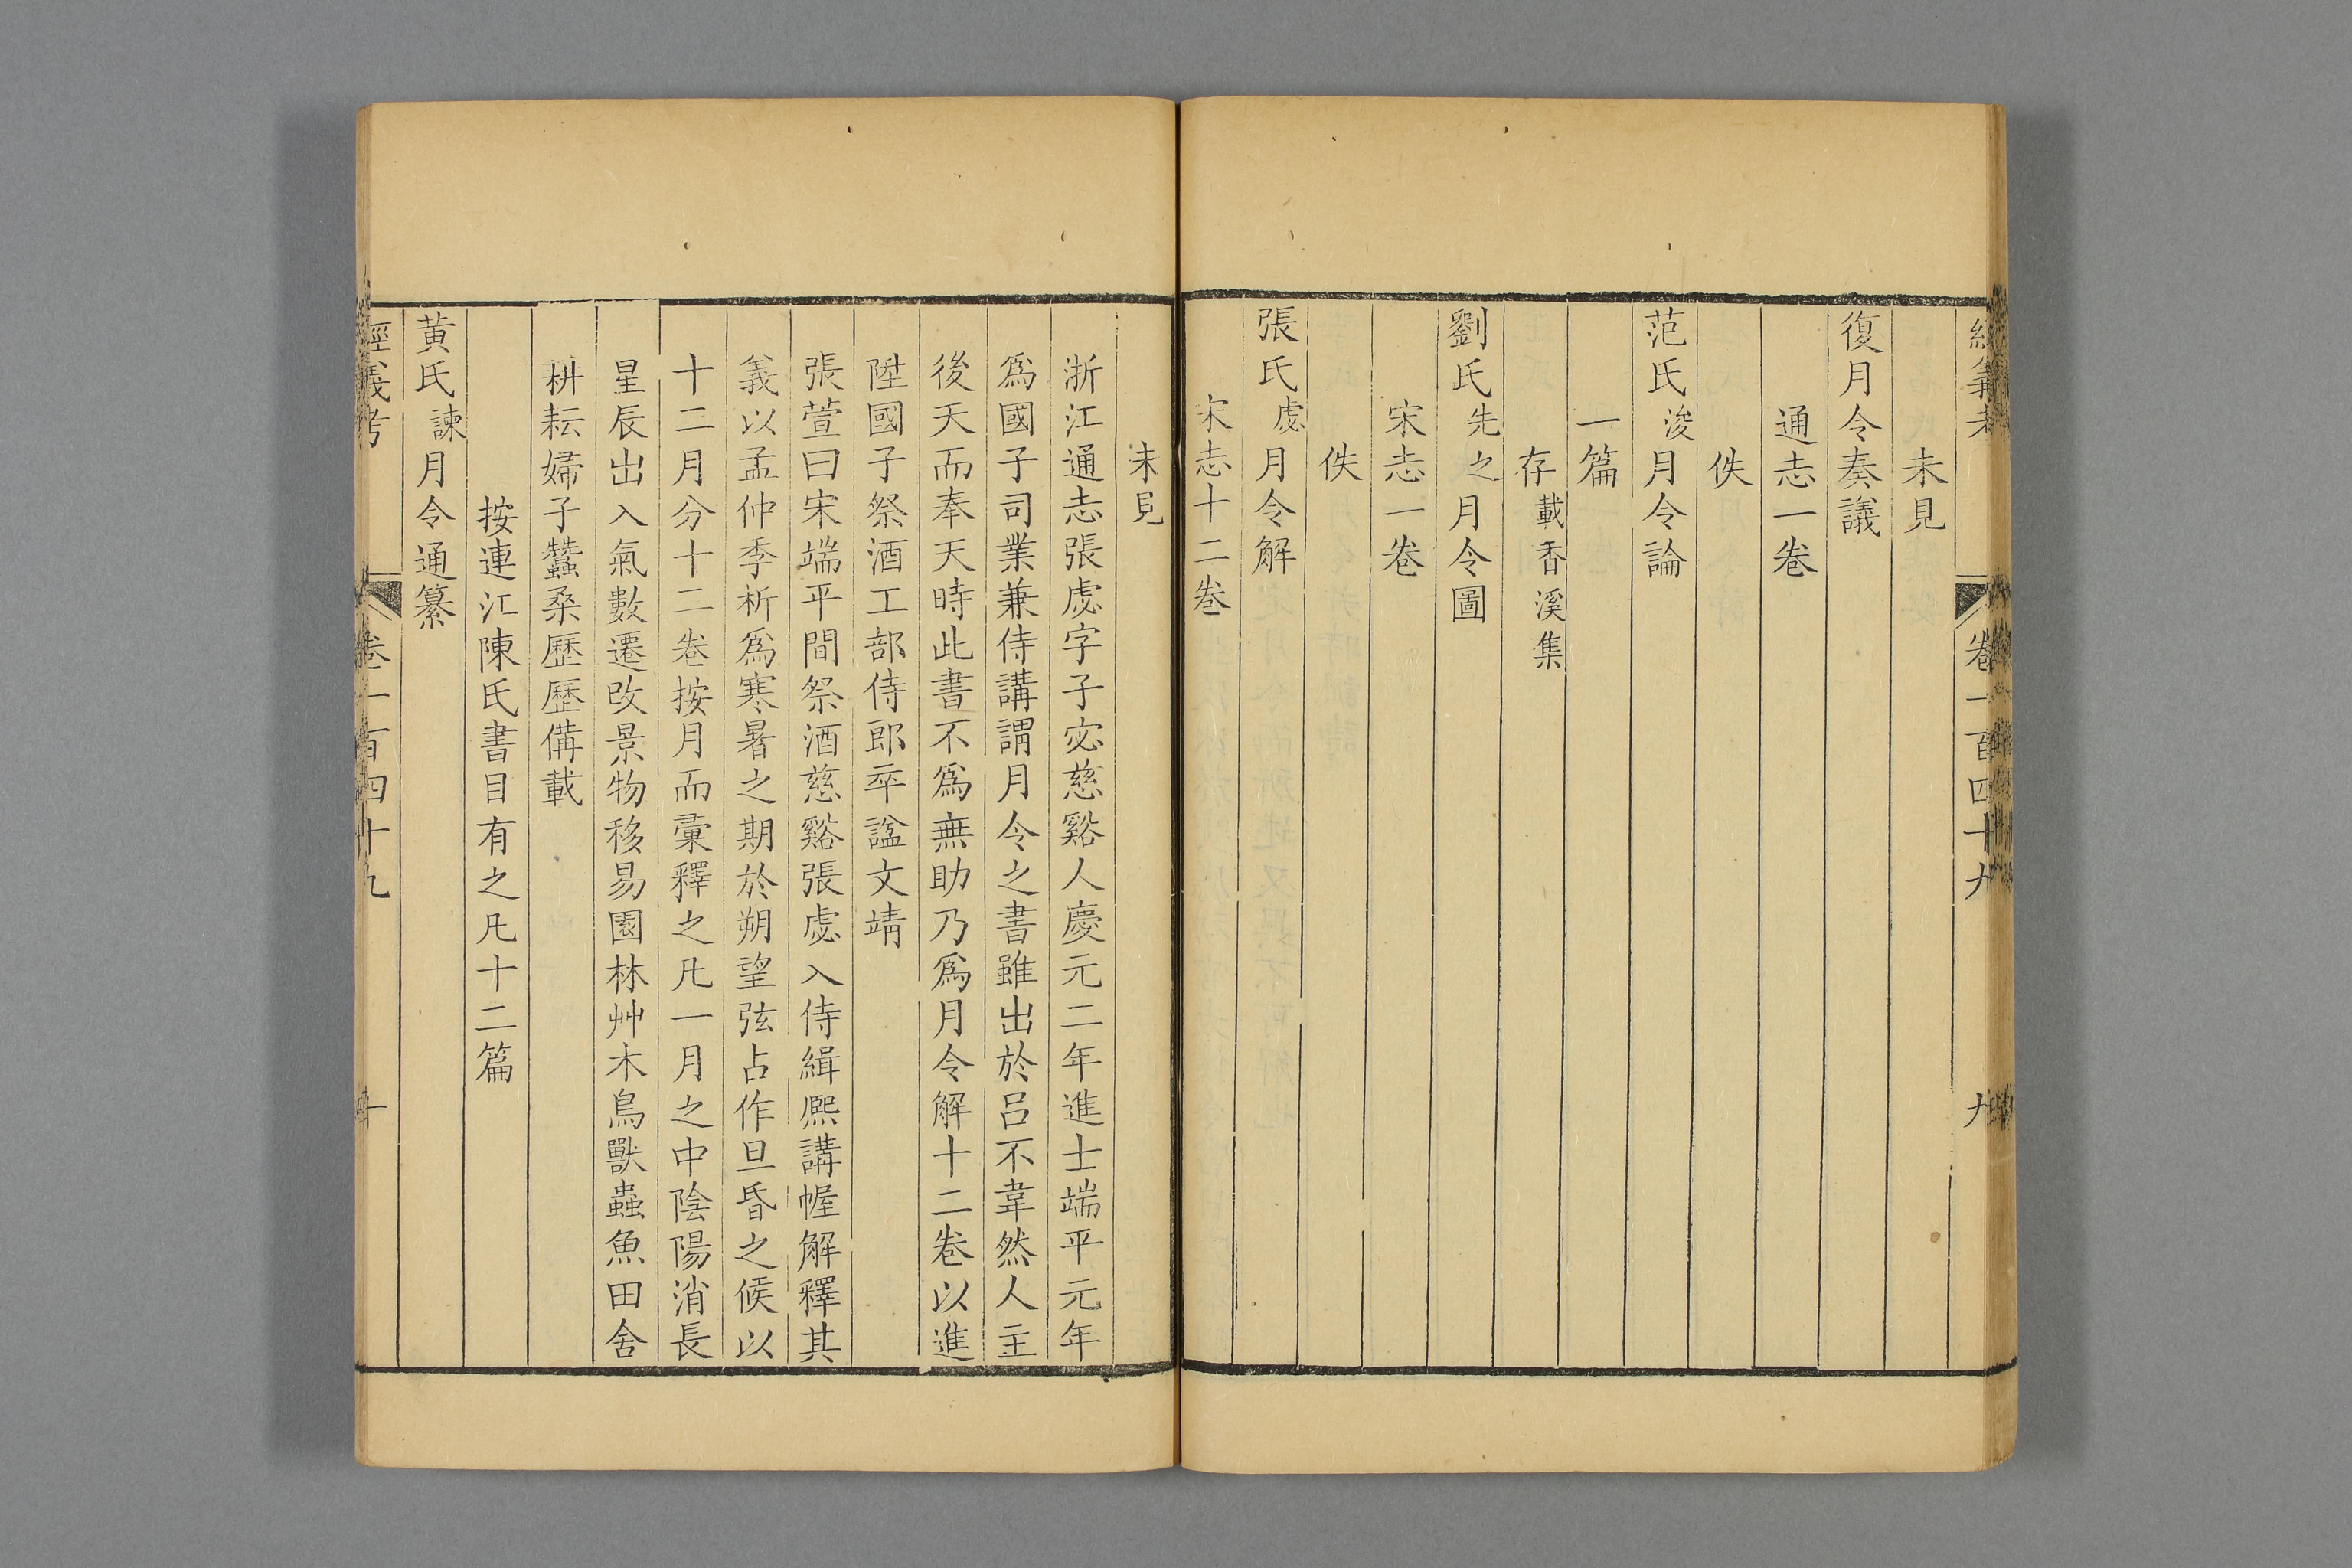 經義考 卷一百四十九 九
未見
復月令奏議
通志一卷
佚
范氏浚月令論
一篇
存載香溪集
劉氏先之月令圖
宋志一卷
佚
張氏虙月令解
宋志十二卷
未見
浙江通志張虙字子宓慈谿人慶元二年進士端平元年
為國子司業兼侍講謂月令之書雖出於呂不韋然人主
後天而奉天時此書不為無助乃為月令解十二卷以進
陞國子祭酒工部侍郎卒諡文靖
張萱曰宋端平間祭酒慈谿張虙入侍緝熈講幄解釋其
義以孟仲季析為寒暑之期於朔望弦占作旦昏之候以
十二月分十二卷按月而彚釋之凡一月之中陰陽消長
星辰出入氣數遷改景物移易園林艸木鳥獸蟲魚田舍
耕耘婦子蠶桑歷歷備載
按連江陳氏書目有之凡十二篇
黄氏諫月令通纂
經義考 卷一百四十九 十